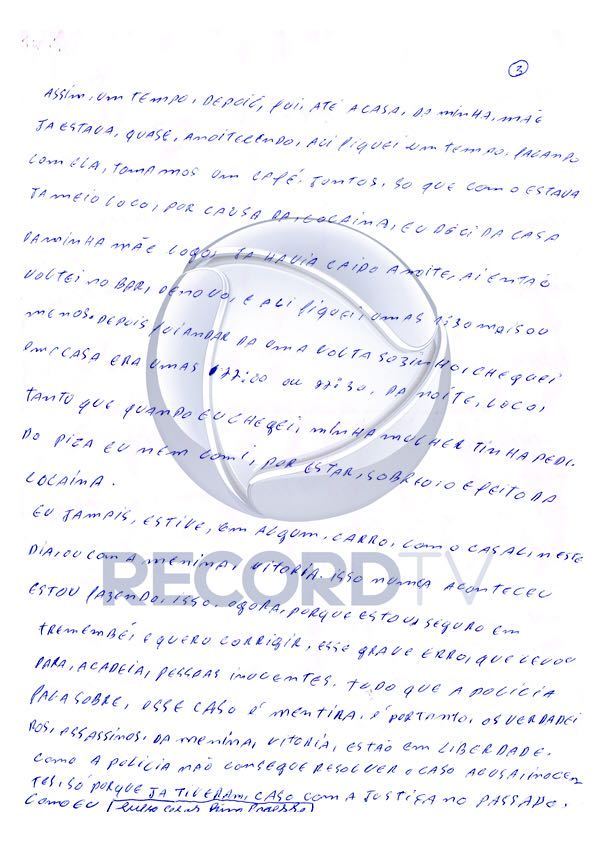 3
ASSIM, UM TEMPO, DEPOIS, FUI, ATÉ A CASA, DA MINHA, MÃE
JA ESTAVA, QUASE, ANOITECENDO, ALI FIQUEI UM TEMPO, FALANDO
COM ELA, TOMAMOS UM CAFÉ. JUNTOS, SO QUE COMO ESTAVA
JA MEIO LOCO, POR CAUSA DA, COCAINA, EU DECI DA CASA
DA MINHA MÃE LOGO, JA HAVIA CAIDO A NOITE, AI ENTÃO
VOLTEI NO BAR, DENOVO, E ALI FIQUEI, UMAS 1:30 MAIS OU
MENOS. DEPOIS FUI ANDAR DA UMA VOLTA SOZINHO, CHEGUEI
EM CASA ERA UMAS 22:00 OU 22:30, DA NOITE, LOCO,
TANTO QUE QUANDO EU CHEGEI, MINHA MULHER TINHA PEDI-
DO PIZA EU NEM COMI, POR ESTAR, SOBRE O EFEITO DA
COCAÍNA.
EU JAMAIS, ESTIVE, EM ALGUM, CARRO, COM O CASAL, NESTE
DIA, OU COM A MENINA, VITORIA. ISSO NUNCA ACONTECEU
ESTOU FAZENDO, ISSO, AGORA, PORQUE ESTOU SEGURO EM
TREMEMBÉ, E QUERO CORRIGIR, ESSE GRAVE ERRO, QUE LEVOU
PARA, A CADEIA, PESSOAS INOCENTES. TUDO QUE A POLÍCIA
FALA SOBRE, ESSE CASO É MENTIRA. É PORTANTO, OS VERDADEI
ROS, ASSASSINOS, DA MENINA, VITORIA, ESTÃO EM LIBERDADE.
COMO A POLÍCIA NÃO CONSEGUE RESOLVER O CASO ACUSA, INOCEN
TES, SÓ PORQUE JA TIVERAM, CASO COM A JUSTIÇA NO PASSADO.
COMO EU
RECORDTV